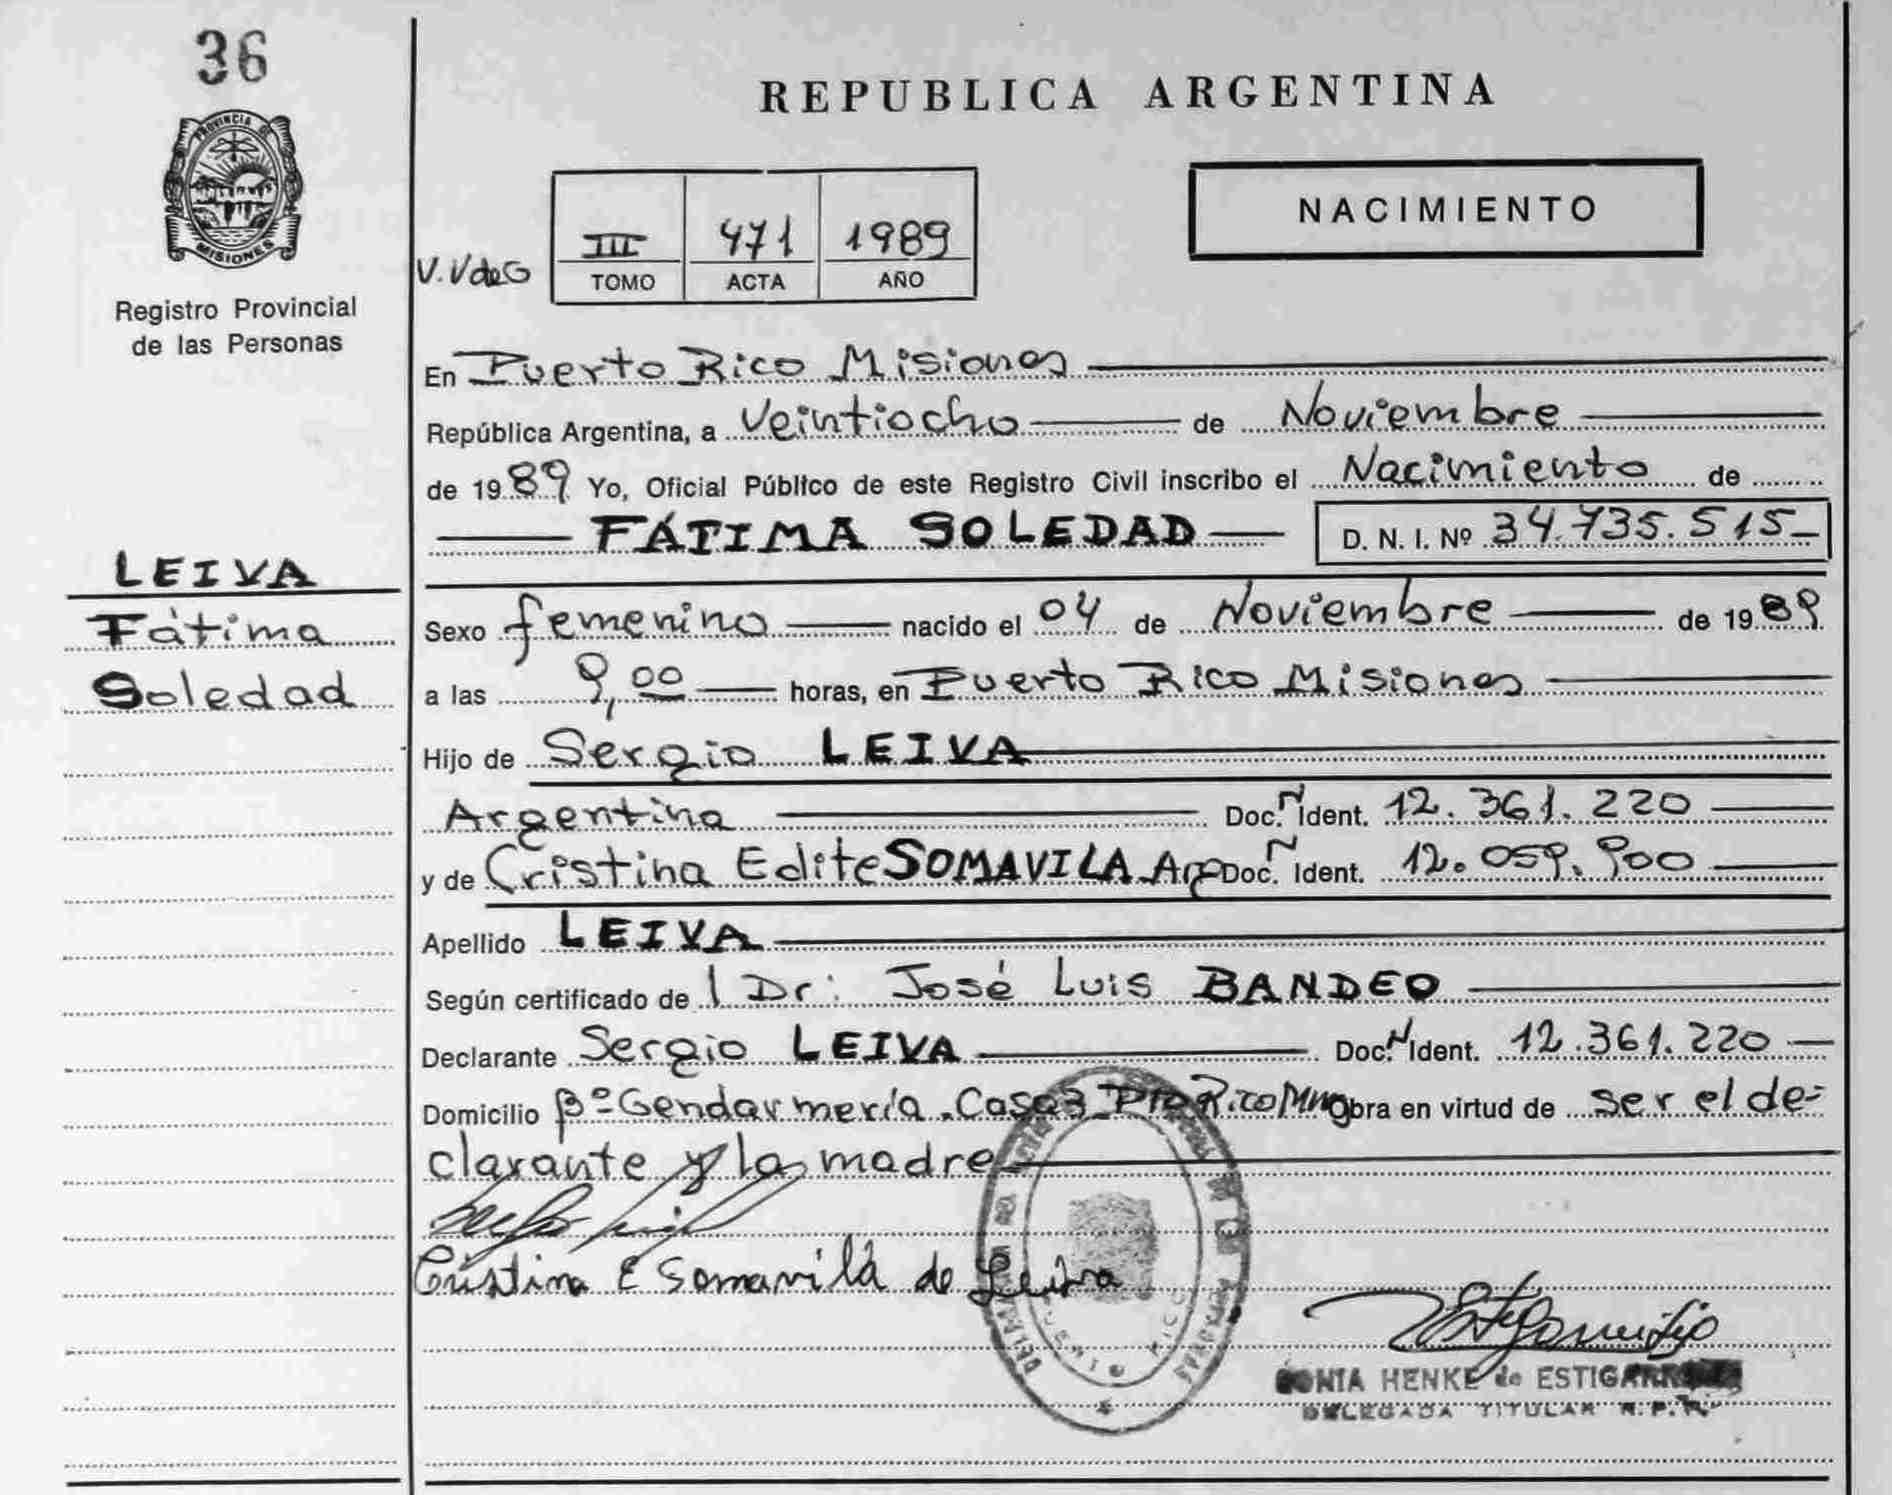 36
PROVINCIA DE
MISIONES
Registro Provincial
de las Personas
REPUBLICA ARGENTINA
NACIMIENTO
V. VdeG
III 471 1989
TOMO ACTA AÑO
En Puerto Rico Misiones
República Argentina, a Veintiocho de Noviembre
de 1989 Yo, Oficial Público de este Registro Civil inscribo el Nacimiento de
FÁTIMA SOLEDAD D. N. I. Nº 34.735.515
LEIVA
Fátima
Soledad
Sexo femenino nacido el 04 de Noviembre de 1989
a las 9,00 horas, en Puerto Rico Misiones
Hijo de Sergio LEIVA
Argentina Doc. N Ident. 12.361.220
y de Cristina Edite SOMAVILA Arg Doc. N Ident. 12.059.900
Apellido LEIVA
Según certificado de l Dr: José Luis BANDEO
Declarante Sergio LEIVA Doc. N Ident. 12.361.220
Domicilio Bº Gendarmería. Casa 3 Pto Rico Mnes Obra en virtud de ser el de-
clarante y la madre
Cristina E Somavilá de Leiva
PUERTO RICO
SONIA HENKE de
DELEGADA TITULAR R. P. P.